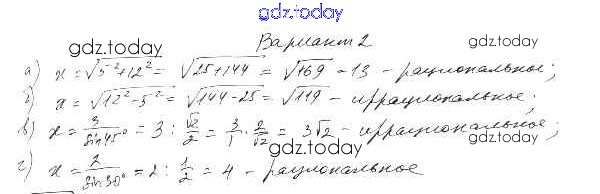 gdz.today
Вариант 2
gdz.today gdz.today
а) x = √5² + 12² = √25 + 144 = √169 - 13 - рациональное;
б) x = √12² - 5² = √144 - 25 = √119 - иррациональное;
в) x = 3/sin 45° = 3 : √2/2 = 3/1 · 2/√2 = 3√2 - иррациональное;
gdz.today gdz.today
г) x = 2/sin 30° = 2 : 1/2 = 4 - рациональное